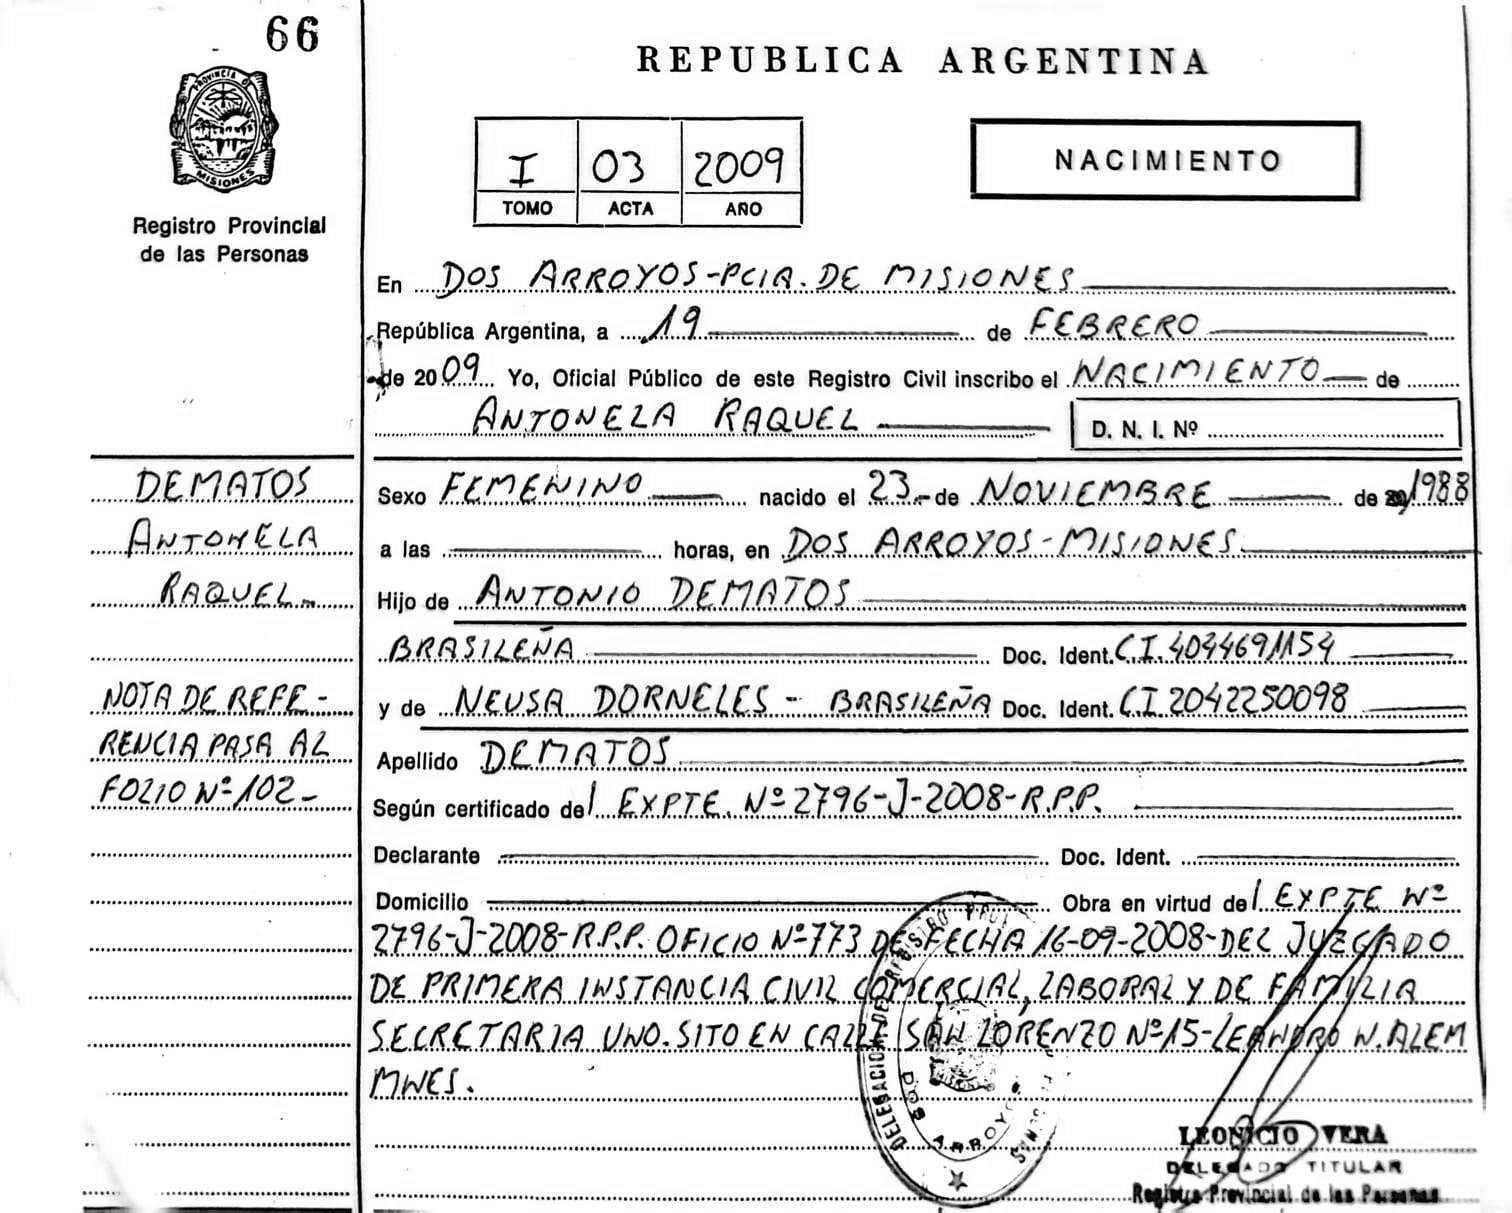 66
REPUBLICA ARGENTINA
PROVINCIA DE
MISIONES
Registro Provincial
de las Personas
I 03 2009
TOMO ACTA AÑO
NACIMIENTO
En DOS ARROYOS-PCIA. DE MISIONES
República Argentina, a 19 de FEBRERO
de 2009 Yo, Oficial Público de este Registro Civil inscribo el NACIMIENTO de
ANTONELA RAQUEL D. N. I. Nº
DEMATOS
ANTONELA
RAQUEL.-
NOTA DE REFE-
RENCIA PASA AL
FOLIO Nº 102-
Sexo FEMENINO nacido el 23.- de NOVIEMBRE de 1988
a las horas, en DOS ARROYOS-MISIONES.
Hijo de ANTONIO DEMATOS
BRASILEÑA Doc. Ident. C.I. 4034691154
y de NEUSA DORNELES - BRASILEÑA Doc. Ident. C.I 2042250098
Apellido DEMATOS
Según certificado del EXPTE. Nº 2796-J-2008-R.P.P.
Declarante Doc. Ident.
Domicilio Obra en virtud del EXPTE Nº
2796-J-2008-R.P.P. OFICIO Nº 773 DE FECHA 16-09-2008-DEL JUZGADO
DE PRIMERA INSTANCIA CIVIL COMERCIAL, LABORAL Y DE FAMILIA
SECRETARIA UNO. SITO EN CALLE SAN LORENZO Nº 15-LEANDRO N. ALEM
MNES.
DELEGACION DEL REGISTRO
DOS ARROYOS
LEONICIO VERA
DELEGADO TITULAR
Registro Provincial de las Personas